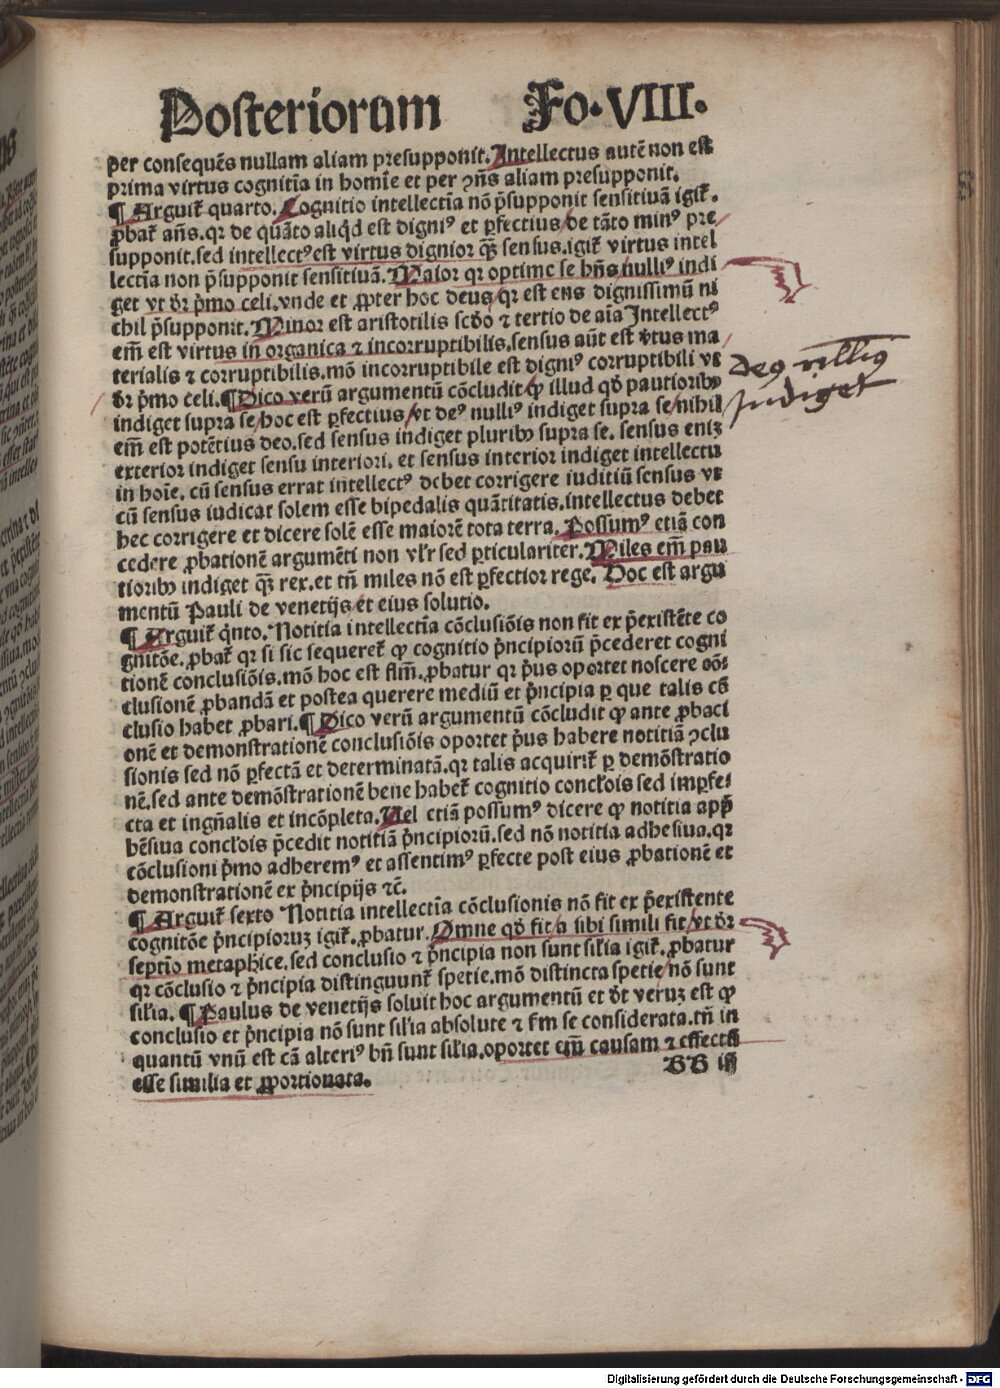 Posteriorum Fo. VIII.
per consequēs nullam aliam presupponit. Intellectus autē non est
prima virtus cognitīa in homīe et per ꝯn̄s aliam presupponit.
¶ Arguit᷑ quarto. Cognitio intellectīa nō p̄supponit sensitiuā igit᷑.
ꝓbat᷑ an̄s. qꝛ de quāto aliqd̓ est digniꝰ et ꝑfectius / de tāto minꝰ pre
supponit. sed intellectꝰ est virtus dignior qȝ̄ sensus. igit᷑ virtus intel
lectīa non p̄supponit sensitiuā. Maior qꝛ optime se hn̄s / nulliꝰ indi
get vt dr̄ pͥmo celi. vnde et ꝓpter hoc deus / qꝛ est ens dignissimū ni
chil p̄supponit. Minor est aristotilis scd̓o ⁊ tertio de aīa Intellectꝰ
em̄ est virtus in organica ⁊ incorruptibilis. sensus aūt est v̓tus ma
terialis ⁊ corruptibilis. mō incorruptibile est digniꝰ corruptibili vt
dr̄ pͥmo celi. ¶ Dico verū argumentū cōcludit / ꝙ illud qd̓ pautioribꝰ
indiget supra se / hoc est ꝑfectius / vt deꝰ nulliꝰ indiget supra se / nihil
em̄ est potētius deo. sed sensus indiget pluribꝰ supra se. sensus eniȝ
exterior indiget sensu interiori. et sensus interior indiget intellectu
in hoīe. cū sensus errat intellectꝰ debet corrigere iuditiū sensus vt
cū sensus iudicat solem esse bipedalis quātitatis. intellectus debet
hec corrigere et dicere solē esse maiorē tota terra. Possumꝰ etiā con
cedere ꝓbationē argumēti non vl̓r sed ꝑticulariter. Miles em̄ pau
tioribꝰ indiget qȝ̄ rex. et tn̄ miles nō est ꝑfectior rege. Hoc est argu
mentū Pauli de venetijs / et eius solutio.
¶ Arguit᷑ qͥnto. Notitia intellectīa cōclusiōis non fit ex p̄existēte co
gnitōe. ꝓbat᷑ qꝛ si sic sequeret᷑ ꝙ cognitio pͥncipiorū p̄cederet cogni
tionē conclusiōis. mō hoc est flm̄. ꝓbatur qꝛ pͥus oportet noscere cō-
clusionē ꝓbandā et postea querere mediū et pͥncipia ꝑ que talis cō
clusio habet ꝓbari. ¶ Dico verū argumentū cōcludit ꝙ ante ꝓbaci
onē et demonstrationē conclusiōis oportet pͥus habere notitiā ꝯclu
sionis sed nō ꝑfectā et determinatā. qꝛ talis acquirit᷑ ꝑ demōstratio
nē. sed ante demōstrationē bene habet᷑ cognitio concl̓ois sed imperfe-
cta et ingn̄alis et incōpleta. Uel etiā possumꝰ dicere ꝙ notitia app̄
hēsiua concl̓ois p̄cedit notitiā pͥncipiorū. sed nō notitia adhesiua. qꝛ
cōclusioni pͥmo adheremꝰ et assentimꝰ ꝑfecte post eius ꝓbationē et
demonstrationē ex pͥncipijs ⁊c̄.
¶ Arguit᷑ sexto Notitia intellectīa cōclusionis nō fit ex p̄existente
cognitōe pͥncipioruȝ igit᷑. ꝓbatur. Omne qd̓ fit / a sibi simili fit / vt dr̄
septīo metaph̓ice. sed conclusio ⁊ pͥncipia non sunt sil̓ia igit᷑. ꝓbatur
qꝛ cōclusio ⁊ pͥncipia distinguunt᷑ spetie. mō distincta spetie / nō sunt
sil̓ia. ¶ Paulus de venetijs soluit hoc argumentū et dt̓ veruȝ est ꝙ
conclusio et pͥncipia nō sunt sil̓ia absolute ⁊ fm se considerata. tn̄ in
quantū vnū est cā alteriꝰ bn̄ sunt sil̓ia. oportet em̄ causam ⁊ effectū
esse similia et ꝓportionata.
BB iij
deꝰ nulliꝰ
indiget